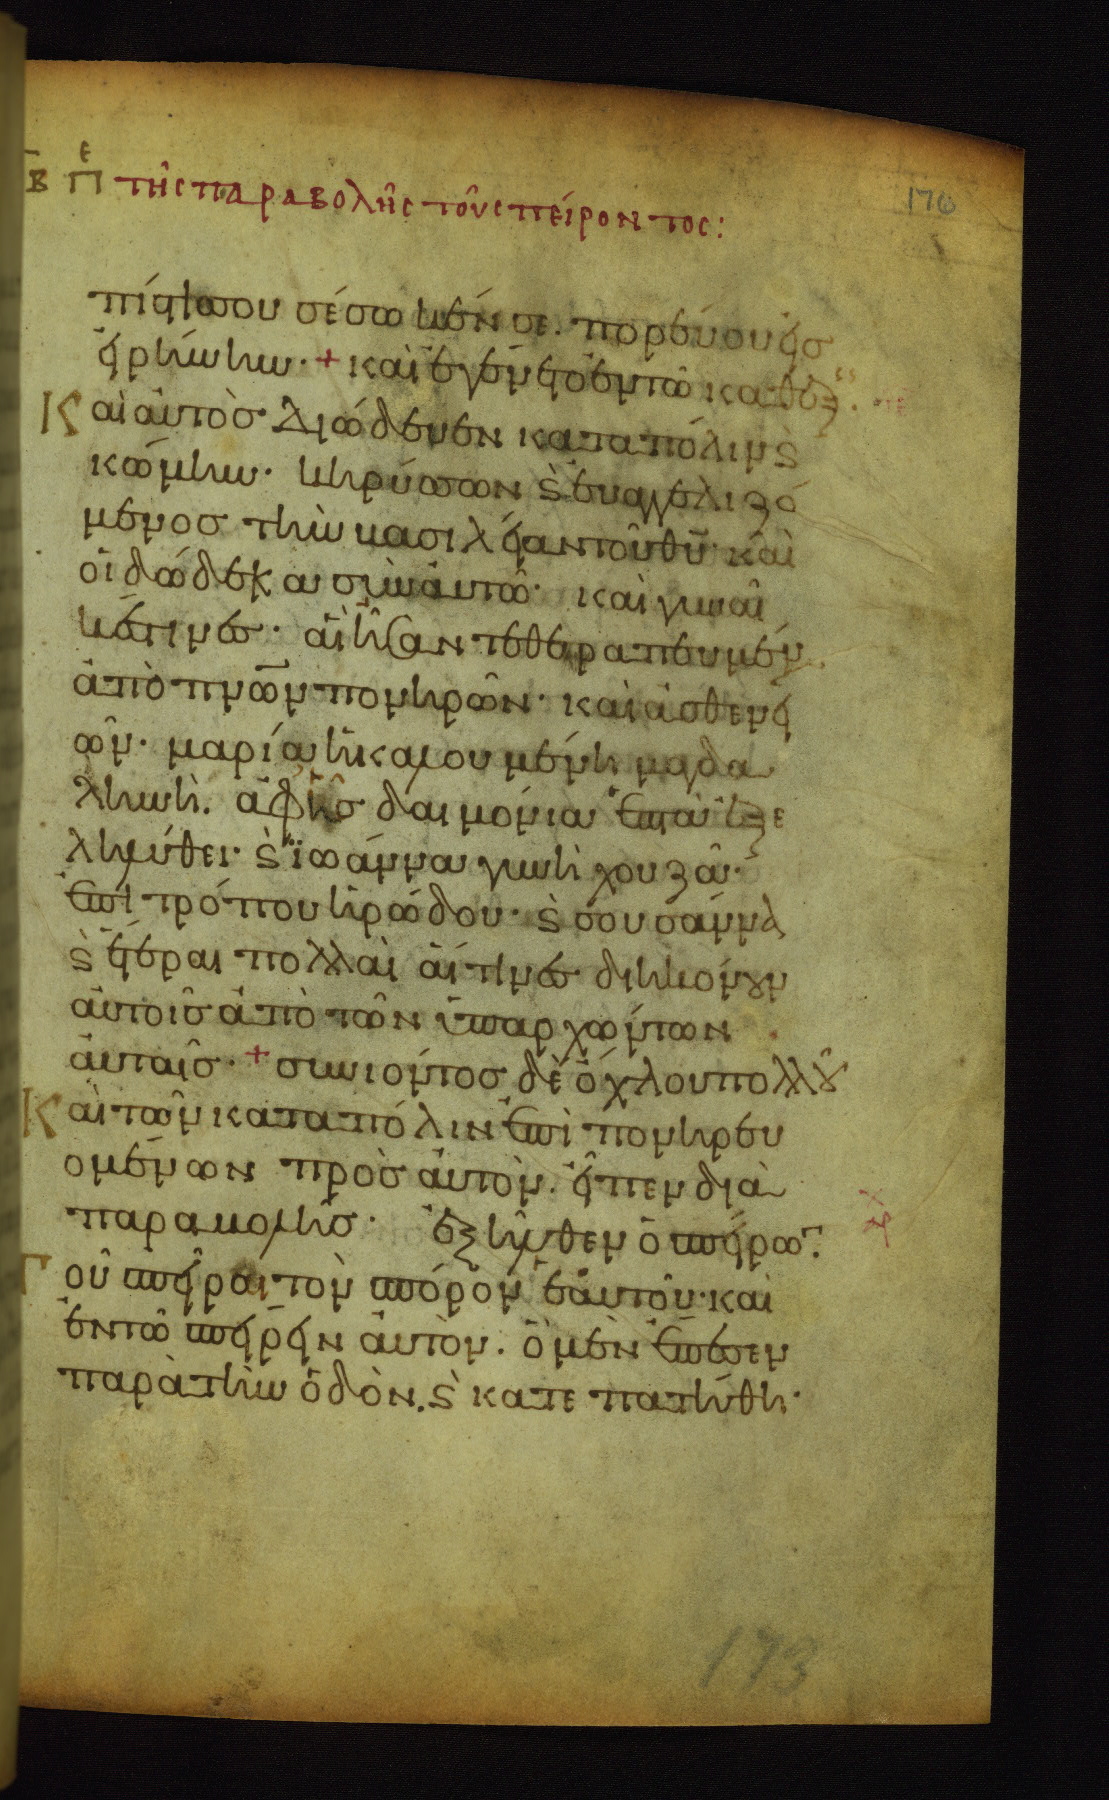 β̅ πε τῆς παραβολῆς τοῦ σπείροντος:
176
πίστις σου σέσωκέν σε. πορεύου εἰς
εἰρήνην. + καὶ ἐγένετο ἐν τῶ καθεξ.
Καὶ αὐτὸς διώδευεν κατα πόλιν ϗ
κώμην. κηρύσσων ϗ ευαγγελιζό
μενος τὴν βασιλείαν τοῦ θυ̅. καὶ
οἱ δώδεκα σὺν αὐτῶ. καὶ γυναῖ
κές τινες. αἳ ἦσαν τεθεραπευμέν
ἀπὸ πνω̅ν πονηρῶν. καὶ ἀσθενει
ῶν. μαρία ἡ καλουμένη μαγδα
ληνὴ. ἀφ ἧς δαιμόνια ἑπτὰ ἐξε
ληλύθει. ϗ ϊωάννα γυνὴ χουζᾶ.
ἐπιτρόπου ἡρώδου. ϗ σουσάννα
ϗ ἕτεραι πολλαὶ αἵτινες διηκόνουν
αὐτοῖς ἀπὸ τῶν ὑπαρχώντων
αὐταῖς. + συνιόντος δὲ ὄχλου πολλοῦ
Καὶ τῶν κατα πόλιν ἐπὶ πονηρευ
ομένων πρὸς αὐτὸν. εἶπεν διὰ
παραβολῆς. ἐξῆλθεν ὁ σπείρων
τοῦ σπεῖραι τὸν σπόρον ἑαυτοῦ. καὶ
ἐν τῶ σπείρειν αὐτὸν. ὃ μὲν ἔπεσεν
παρὰ τὴν ὁδὸν. ϗ κατεπατήθη.
173